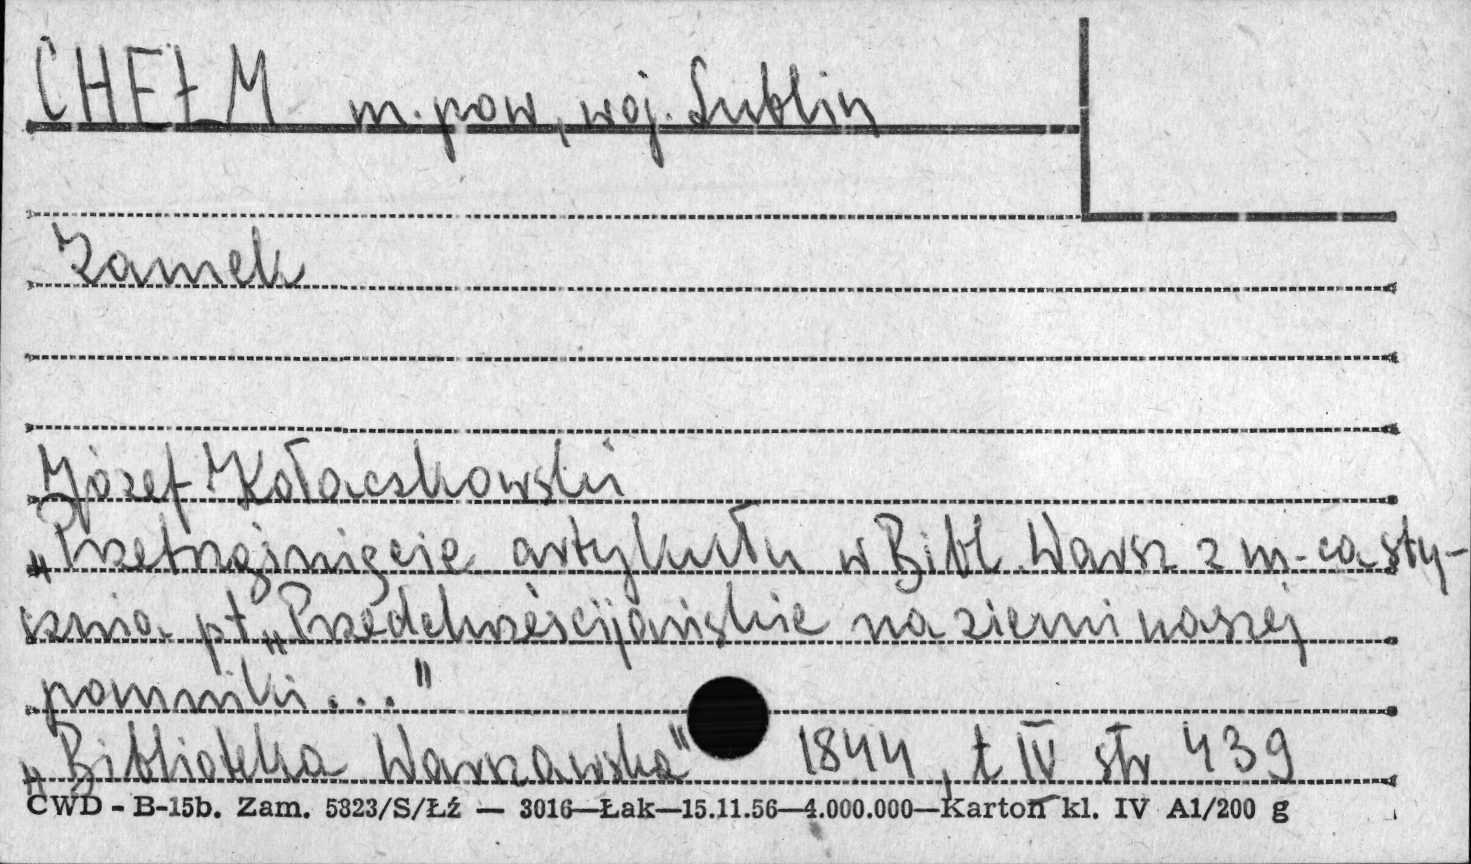 CHEŁM m. pow, woj. Lublin
Zamek
Józef Kołaczkowski
„Przetrząśnięcie artykułu w Bibl. Warsz z m-ca sty-
cznia pt „Przedchrześcijańskie na ziemi naszej
pomniki..."
„Biblioteka Warszawska" 1844, t IV str 439
CWD - B-15b. Zam. 5823/S/Łź — 3016—Łak—15.11.56—4.000.000—Karton kl. IV A1/200 g